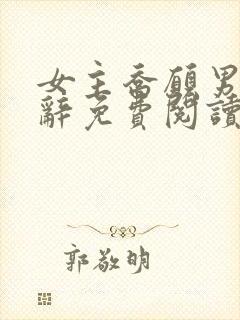 女主喬願男
辭免費閱讀
郭敬明